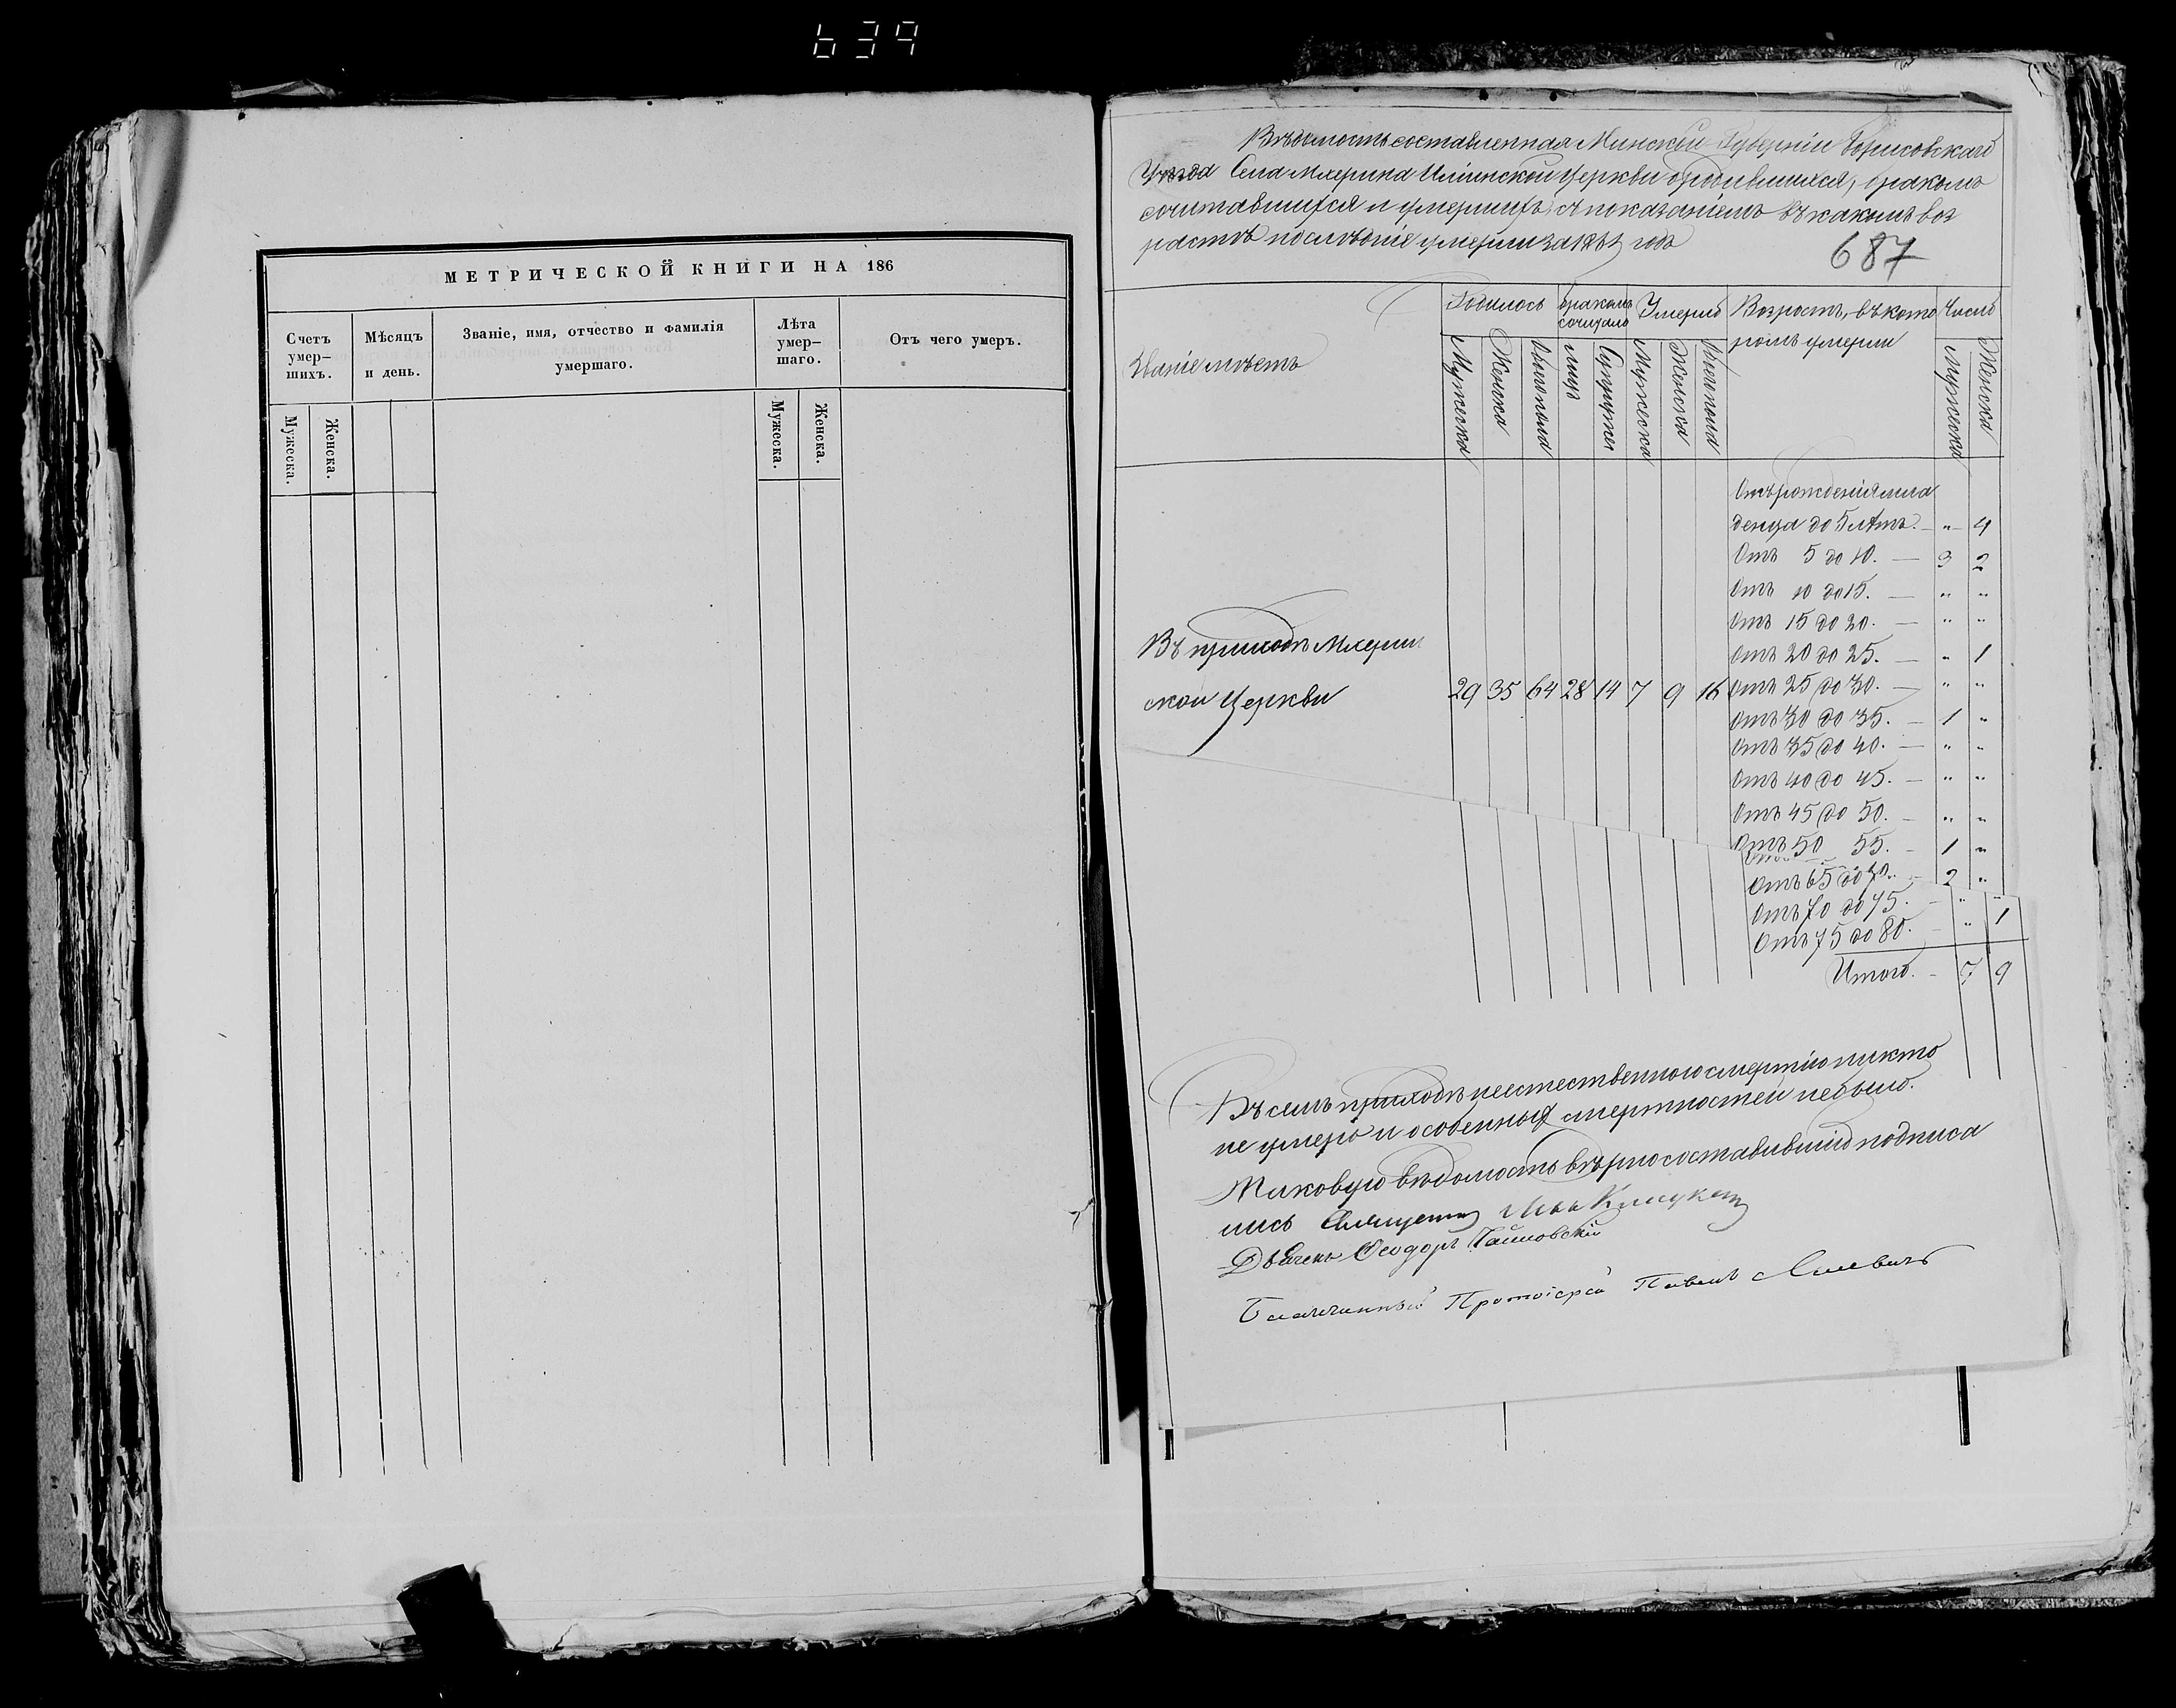 639
МЕТРИЧЕСКОЙ КНИГИ НА 186
Счетъ умер-шихъ.
Мѣсяцъ и день.
Званіе, имя, отчество и фамилія умершаго.
Лѣта умер-шаго.
Отъ чего умеръ.
Мужеска.
Женска.
Мужеска.
Женска.
Вѣдомость составленная Минской Губерніи Борисовскаго
Уѣзда Села Мхерина Иліинской Церкви о родившихся, бракомъ
сочитавшихся и умершихъ, съ показаніемъ въ какомъ воз
растѣ послѣдніе умерли за годъ
687
Званіе мѣстъ
Родилось
бракомъ сочитало
Умерло
Возростъ, въ кото
ромъ умерли
Число
Мужеска
Женска
Обоегопола
Лицъ
Супружес
Мужеска
Женска
Обоегопола
Мужеска
Женска
Отъ рожденія мла
денца до 5 лѣтъ. — „ 4
Отъ 5 до 10. — 3 2
Отъ 10 до 15. — „ „
Отъ 15 до 20. — „ „
Отъ 20 до 25. — „ 1
Въ приходѣ Мхерин
ской Церкви 29 35 64 28 14 7 9 16 Отъ 25 до 30. — „ „
Отъ 30 до 35. — 1 „
Отъ 35 до 40. — „ „
Отъ 40 до 45. — „ „
Отъ 45 до 50. — „ „
Отъ 50 55. — 1 „
Отъ 65 до 70. — 2 „
Отъ 70 до 75. — „ „
Отъ 75 до 80. — „ 1
Итого. — 7 9
Въ семъ приходѣ неестественною смертію никто
не умеръ и особенныхъ смертностей небыло.
Таковую вѣдомость вѣрно составившіе подписа
лись Священ
Дьячекъ Ѳеодоръ
Благочинный Протоіерей Павелъ